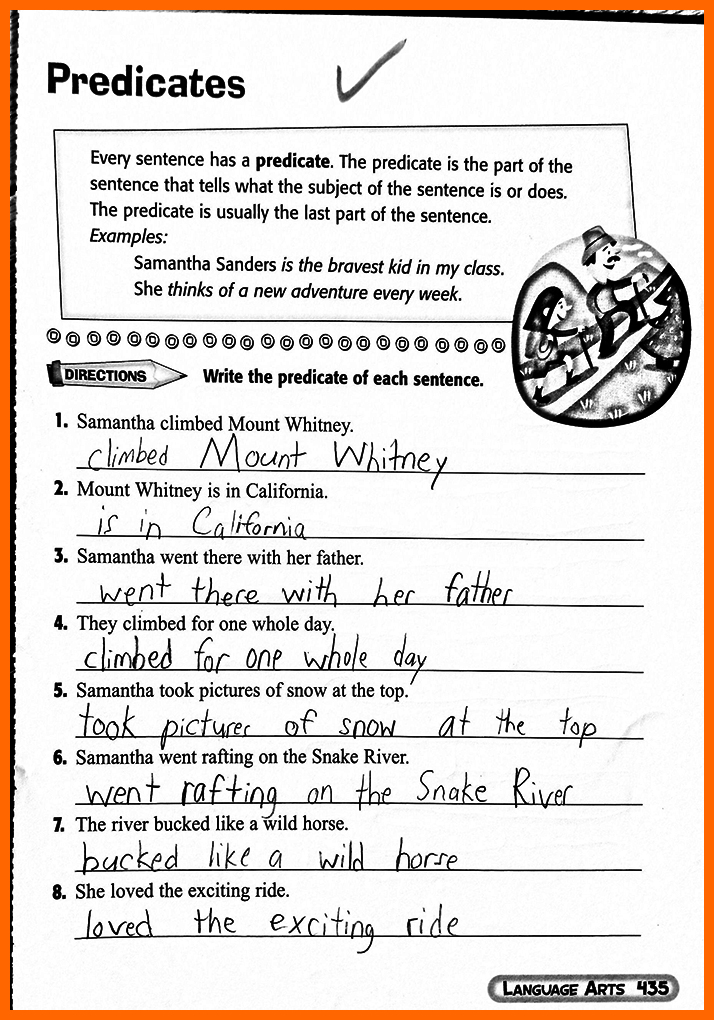 Predicates
Every sentence has a predicate. The predicate is the part of the
sentence that tells what the subject of the sentence is or does.
The predicate is usually the last part of the sentence.
Examples:
Samantha Sanders is the bravest kid in my class.
She thinks of a new adventure every week.
DIRECTIONS Write the predicate of each sentence.
1. Samantha climbed Mount Whitney.
climbed Mount Whitney
2. Mount Whitney is in California.
is in California
3. Samantha went there with her father.
went there with her father
4. They climbed for one whole day.
climbed for one whole day
5. Samantha took pictures of snow at the top.
took pictures of snow at the top
6. Samantha went rafting on the Snake River.
went rafting on the Snake River
7. The river bucked like a wild horse.
bucked like a wild horse
8. She loved the exciting ride.
loved the exciting ride
LANGUAGE ARTS 435